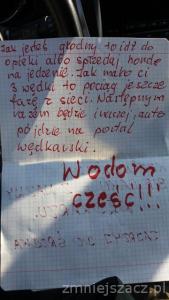 Jak jedeś głodny to idź do
opieki albo sprzedaj hondę
na jedzenie. Jak mało ci
3 wędki to pociąg jeszcze
fazę z sieci. Następnym
razem będzie inaczej, auto
pójdzie na portal
wędkarski.
Wodom
cześć!!!
zmniejszacz.pl